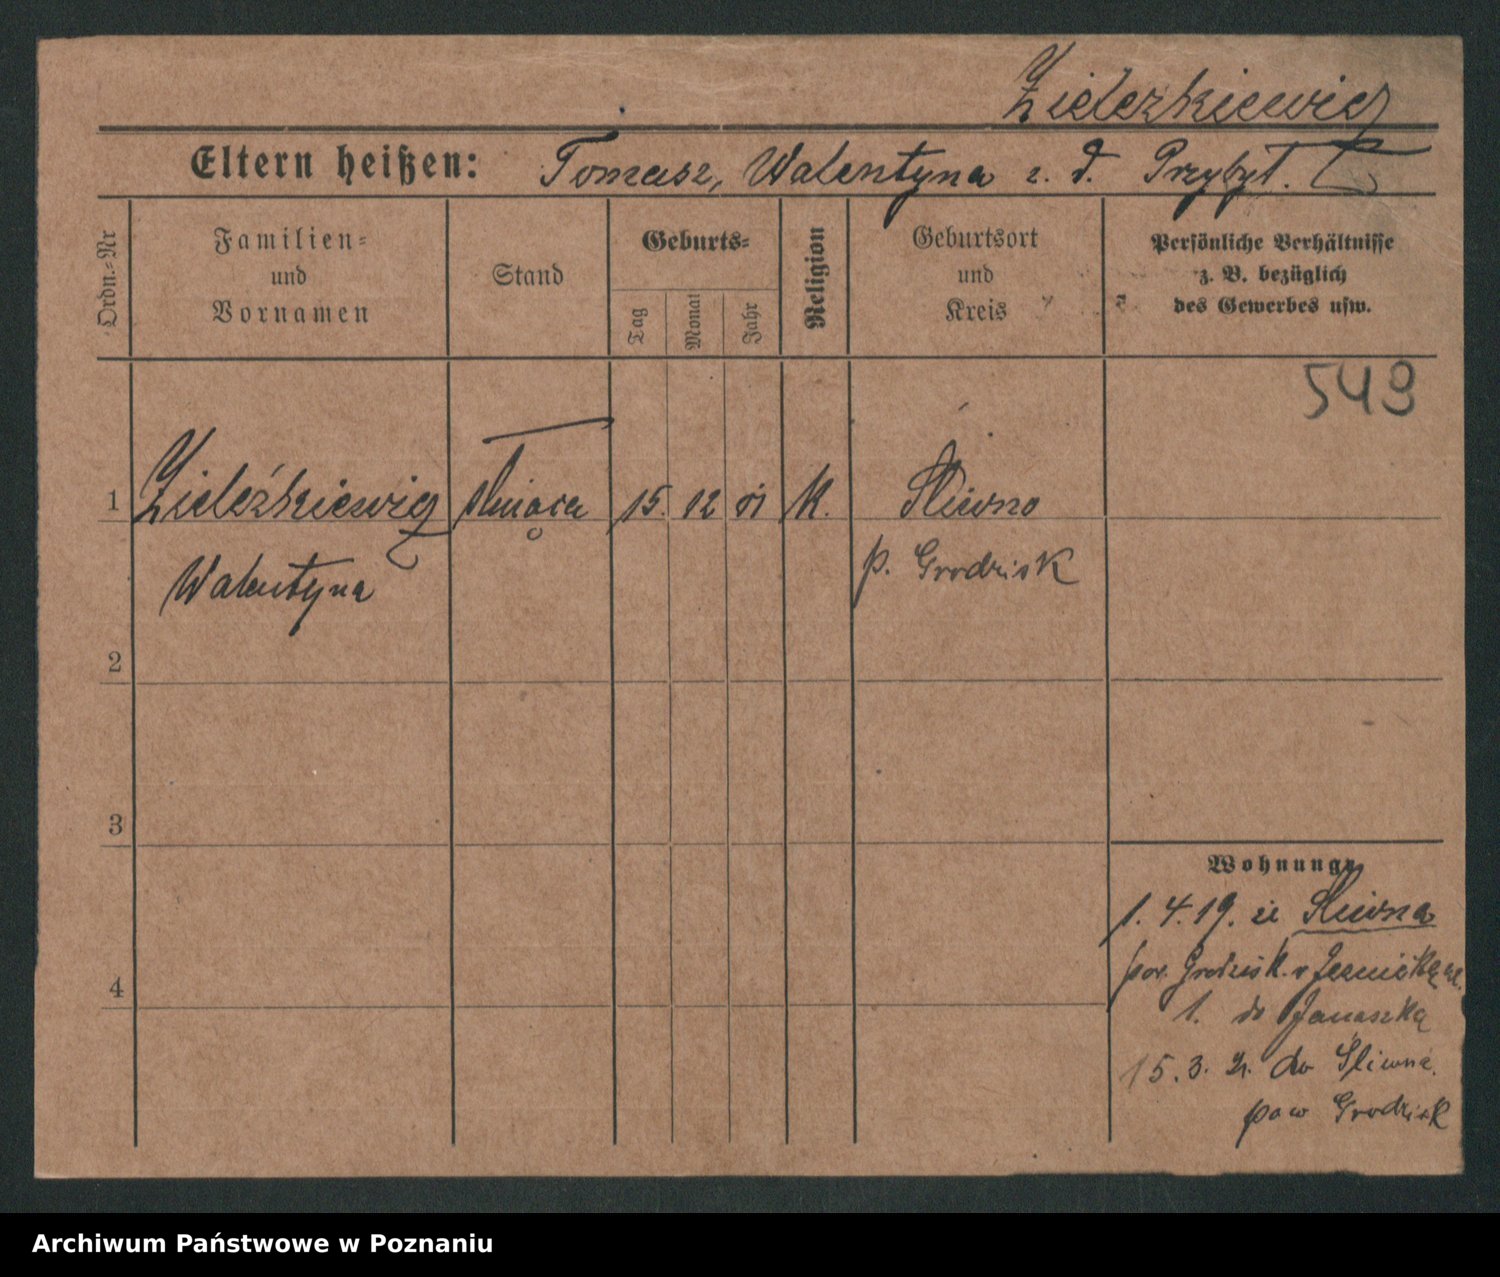 Zielezkiewicz
Eltern heißen: Tomasz, Walentyna z. d. Przybył.
Ordn.-Nr
Familien-
und
Vornamen
Stand
Geburts-
Tag
Monat
Jahr
Religion
Geburtsort
und
Kreis
Persönliche Verhältnisse
z. B. bezüglich
des Gewerbes usw.
549
1 Zieleźkiewicz służąca 15. 12 01 K. Śliwno
Walentyna p. Grodzisk
2
3
Wohnung
1. 4. 19. ze Śliwna
pow. Grodzisk.
4
1. do Janaszka
15. 3. 21. do Śliwna.
pow Grodzisk
Archiwum Państwowe w Poznaniu